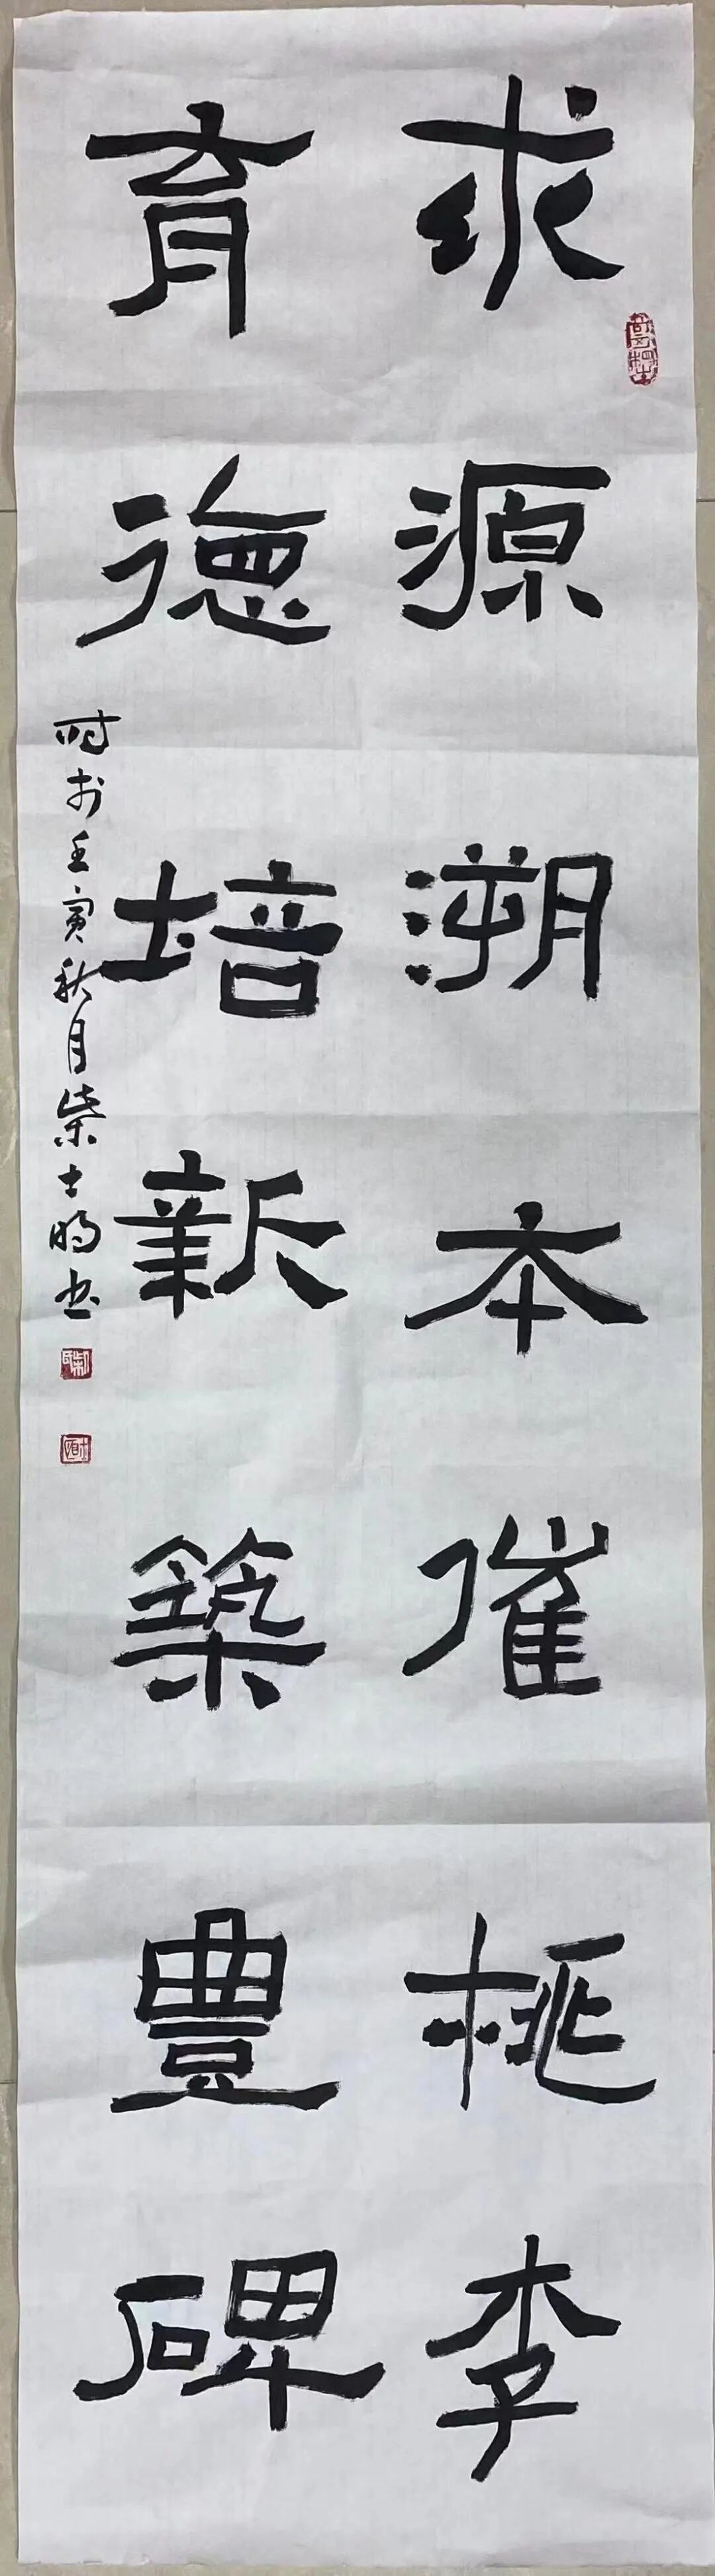 求源溯本催桃李
育德培新築豊碑
时于壬寅秋月柴士鸣书